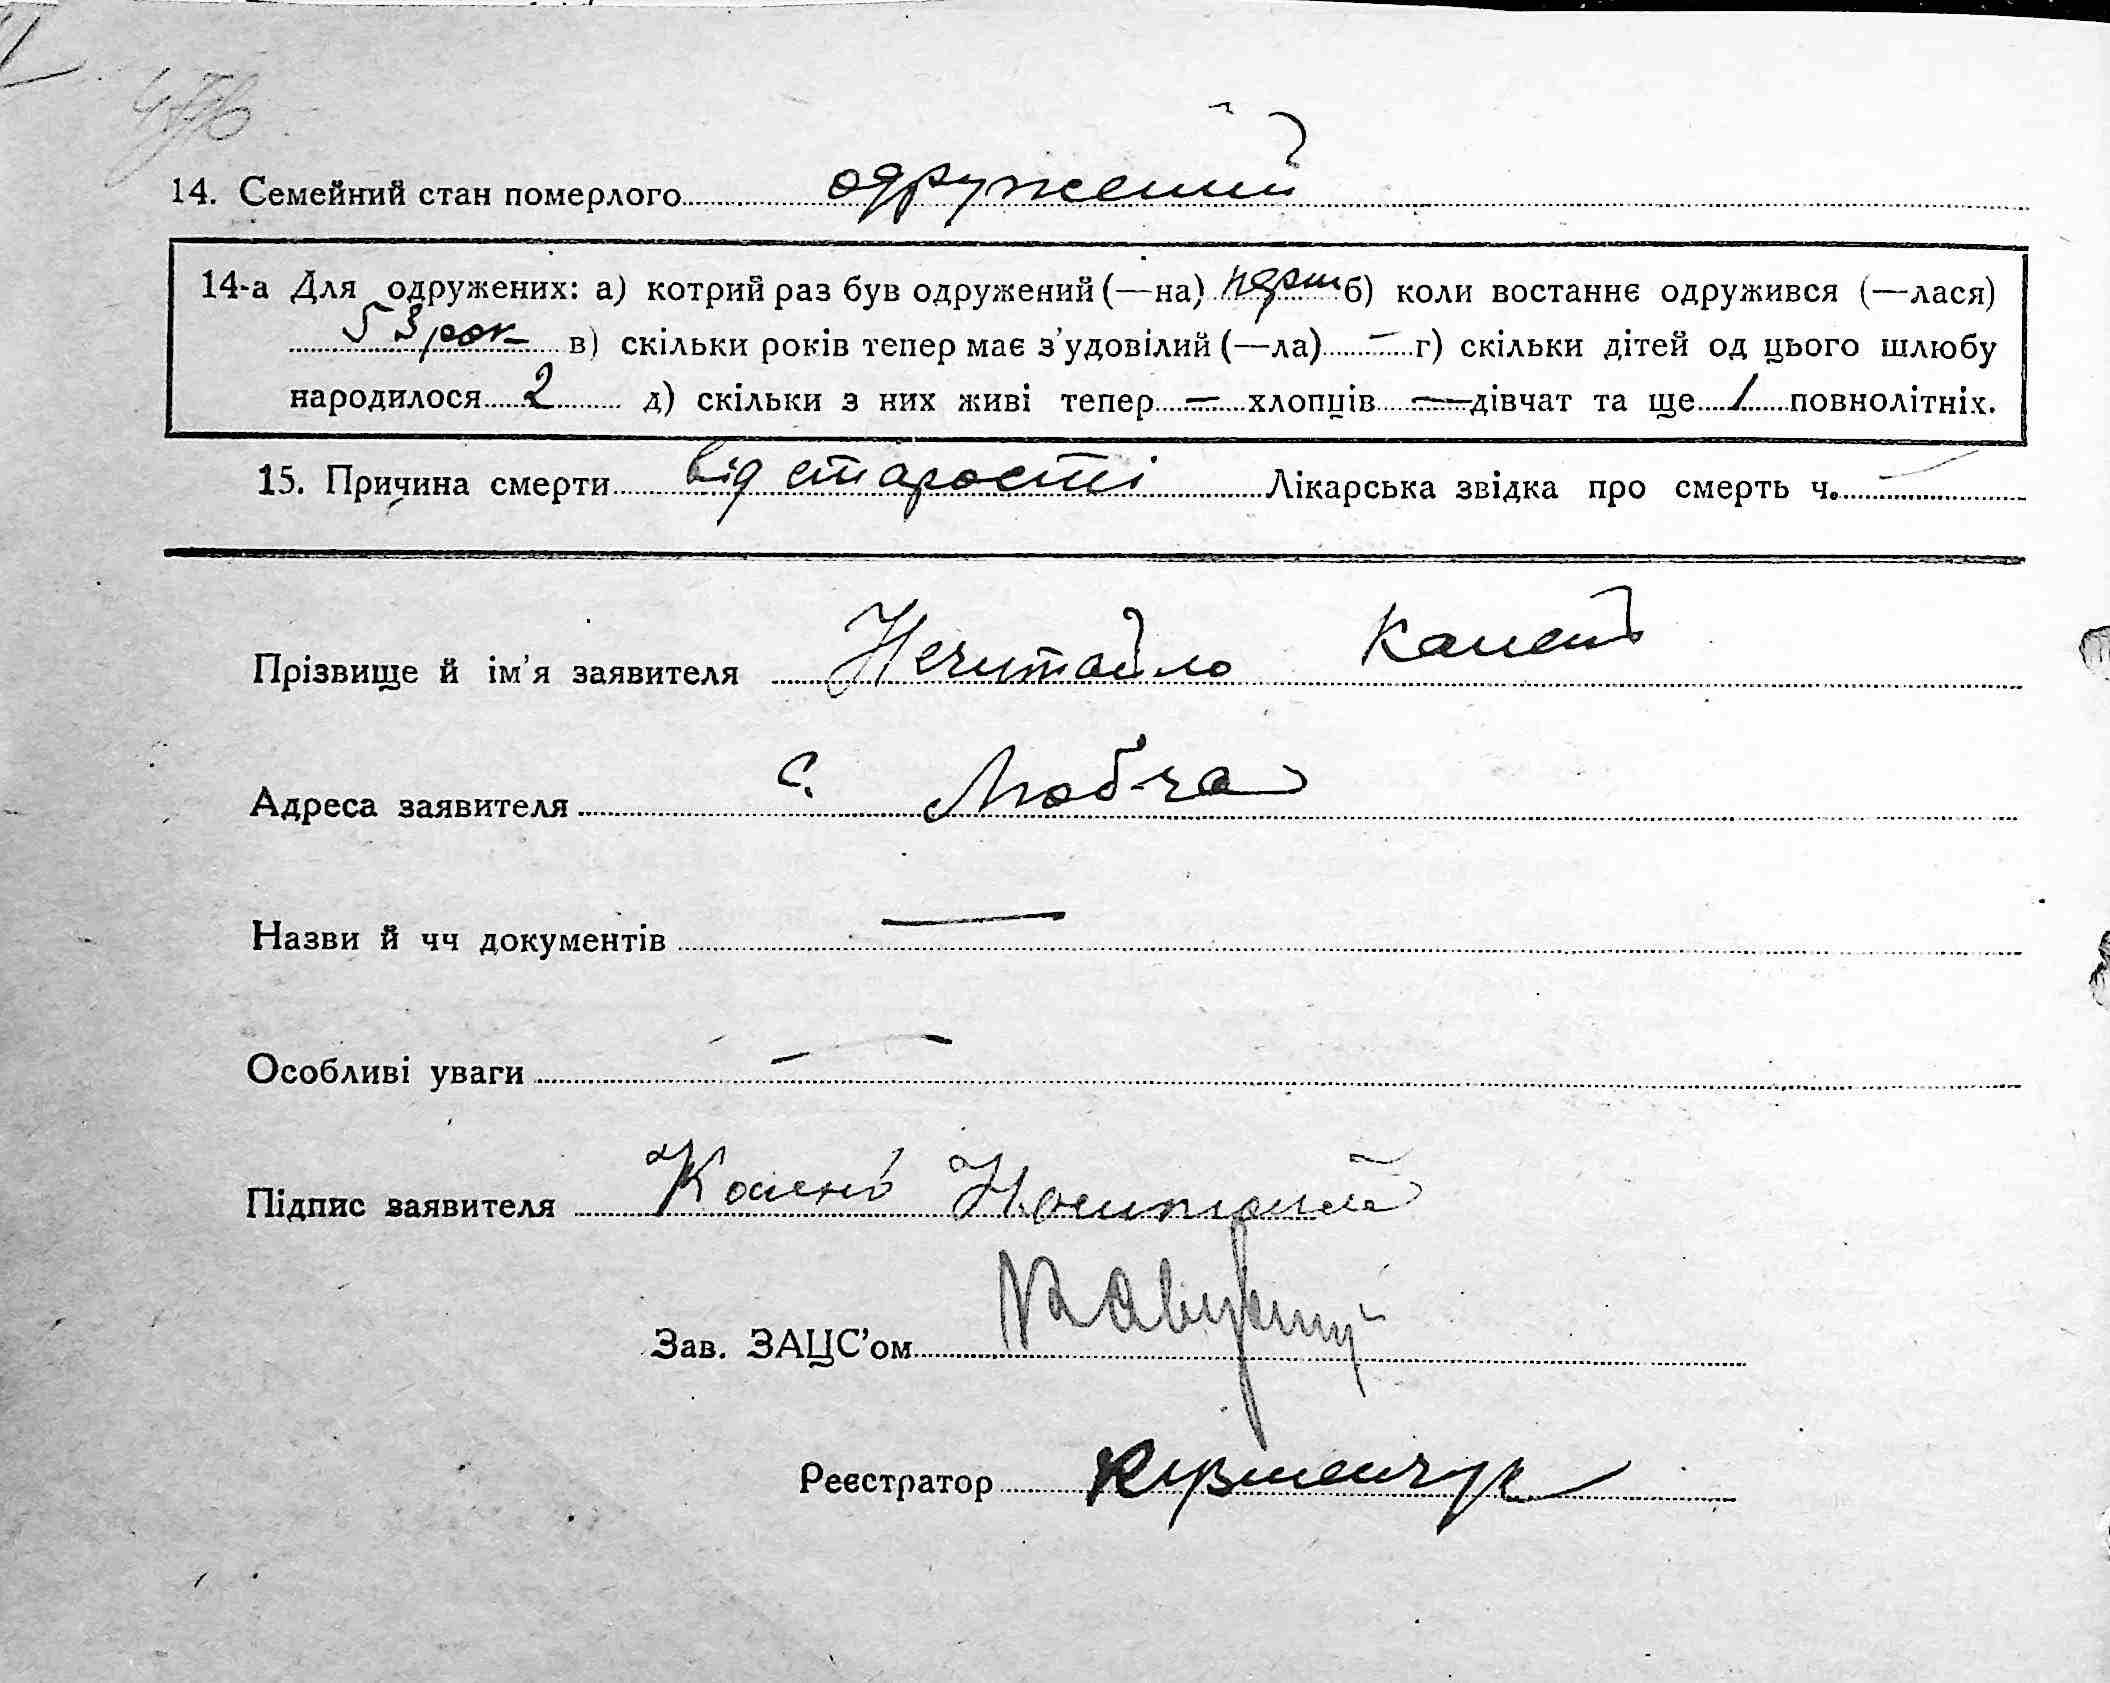 14. Семейний стан померлого одружений
14-а Для одружених: а) котрий раз був одружений (—на) перш б) коли востаннє одружився (—лася)
53 рок в) скільки років тепер має з'удовілий (—ла) — г) скільки дітей од цього шлюбу
народилося 2 д) скільки з них живі тепер — хлопців — дівчат та ще 1 повнолітніх.
15. Причина смерти від старості Лікарська звідка про смерть ч. —
Прізвище й ім'я заявителя Нечитайло
Адреса заявителя с. Любча
Назви й чч документів —
Особливі уваги —
Підпис заявителя
Зав. ЗАЦС'ом
Реєстратор